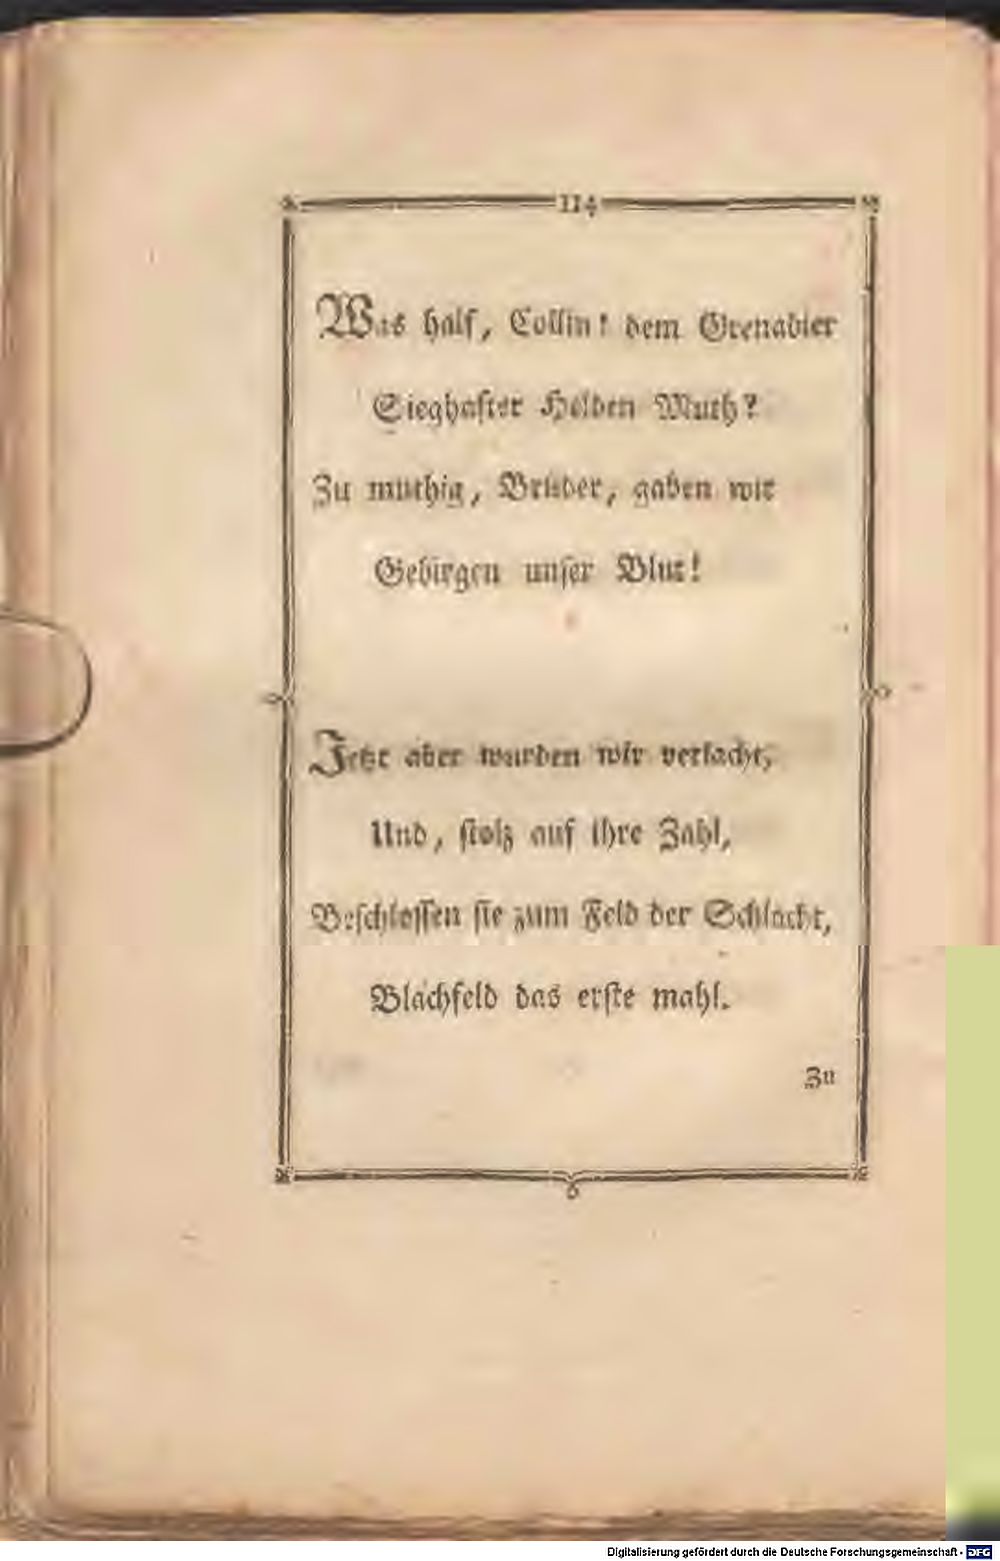 114
Was half, Collin! dem Grenadier
Sieghafter Helden Muth?
Zu muthig, Brüder, gaben wir
Gebirgen unser Blut!
Jetzt aber wurden wir verlacht,
Und, stolz auf ihre Zahl,
Beschlossen sie zum Feld der Schlacht,
Blachfeld das erste mahl.
Zu
Digitalisierung gefördert durch die Deutsche Forschungsgemeinschaft - DFG